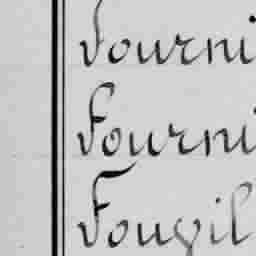 Fourni
Fourni
Fougil